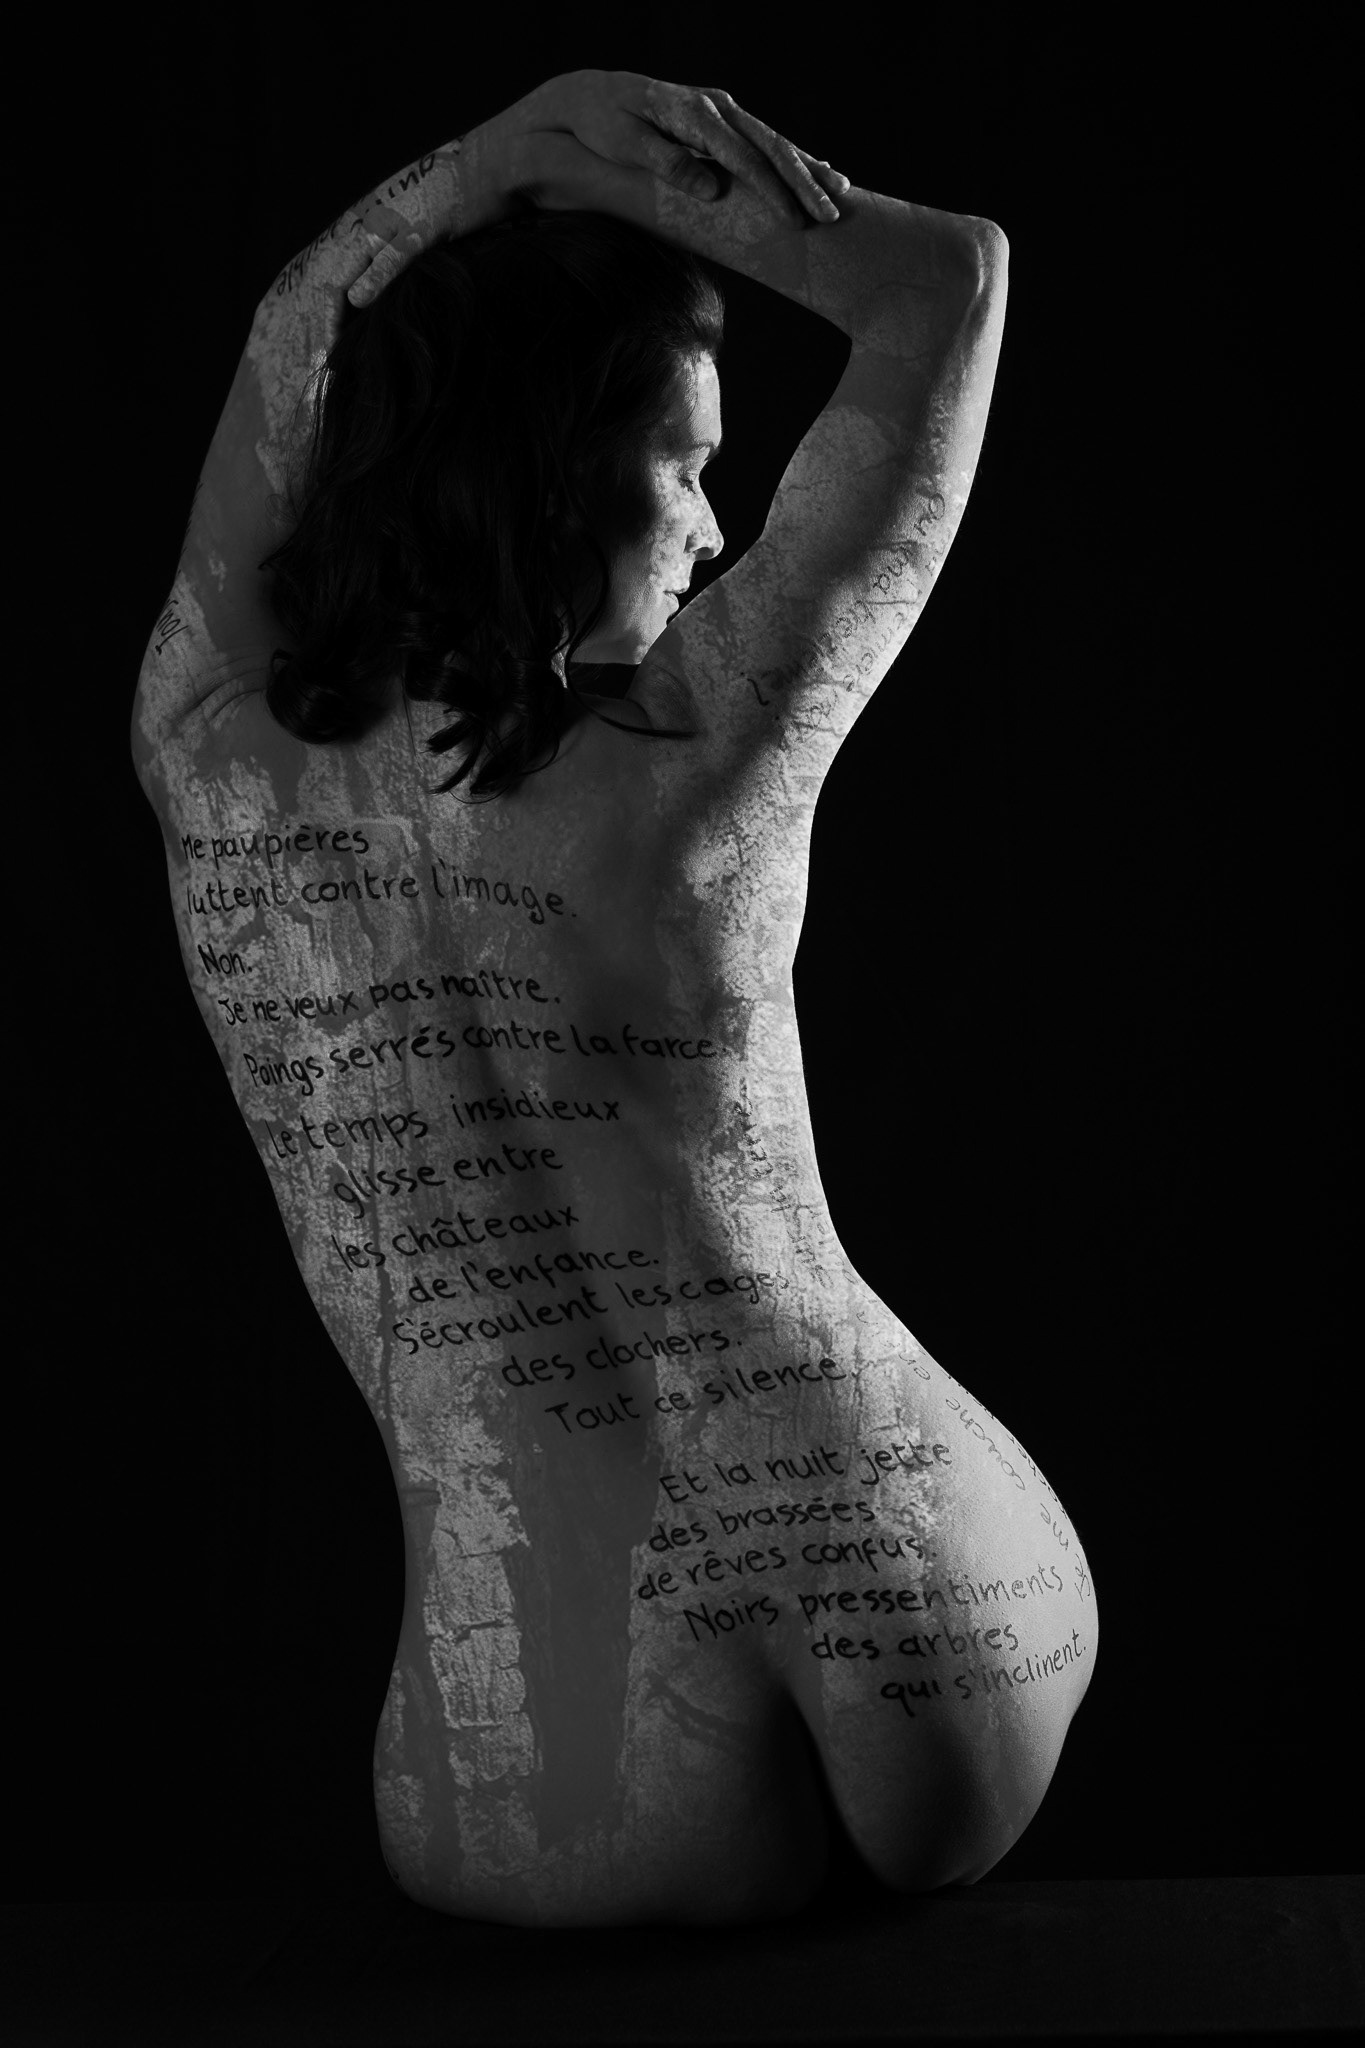 Me paupières
luttent contre l'image.
Non.
Je ne veux pas naître.
Poings serrés contre la farce.
Le temps insidieux
glisse entre
les châteaux
de l'enfance.
S'écroulent les cages
des clochers.
Tout ce silence.
Et la nuit jette
des brassées
de rêves confus.
Noirs pressentiments
des arbres
qui s'inclinent.
me couche